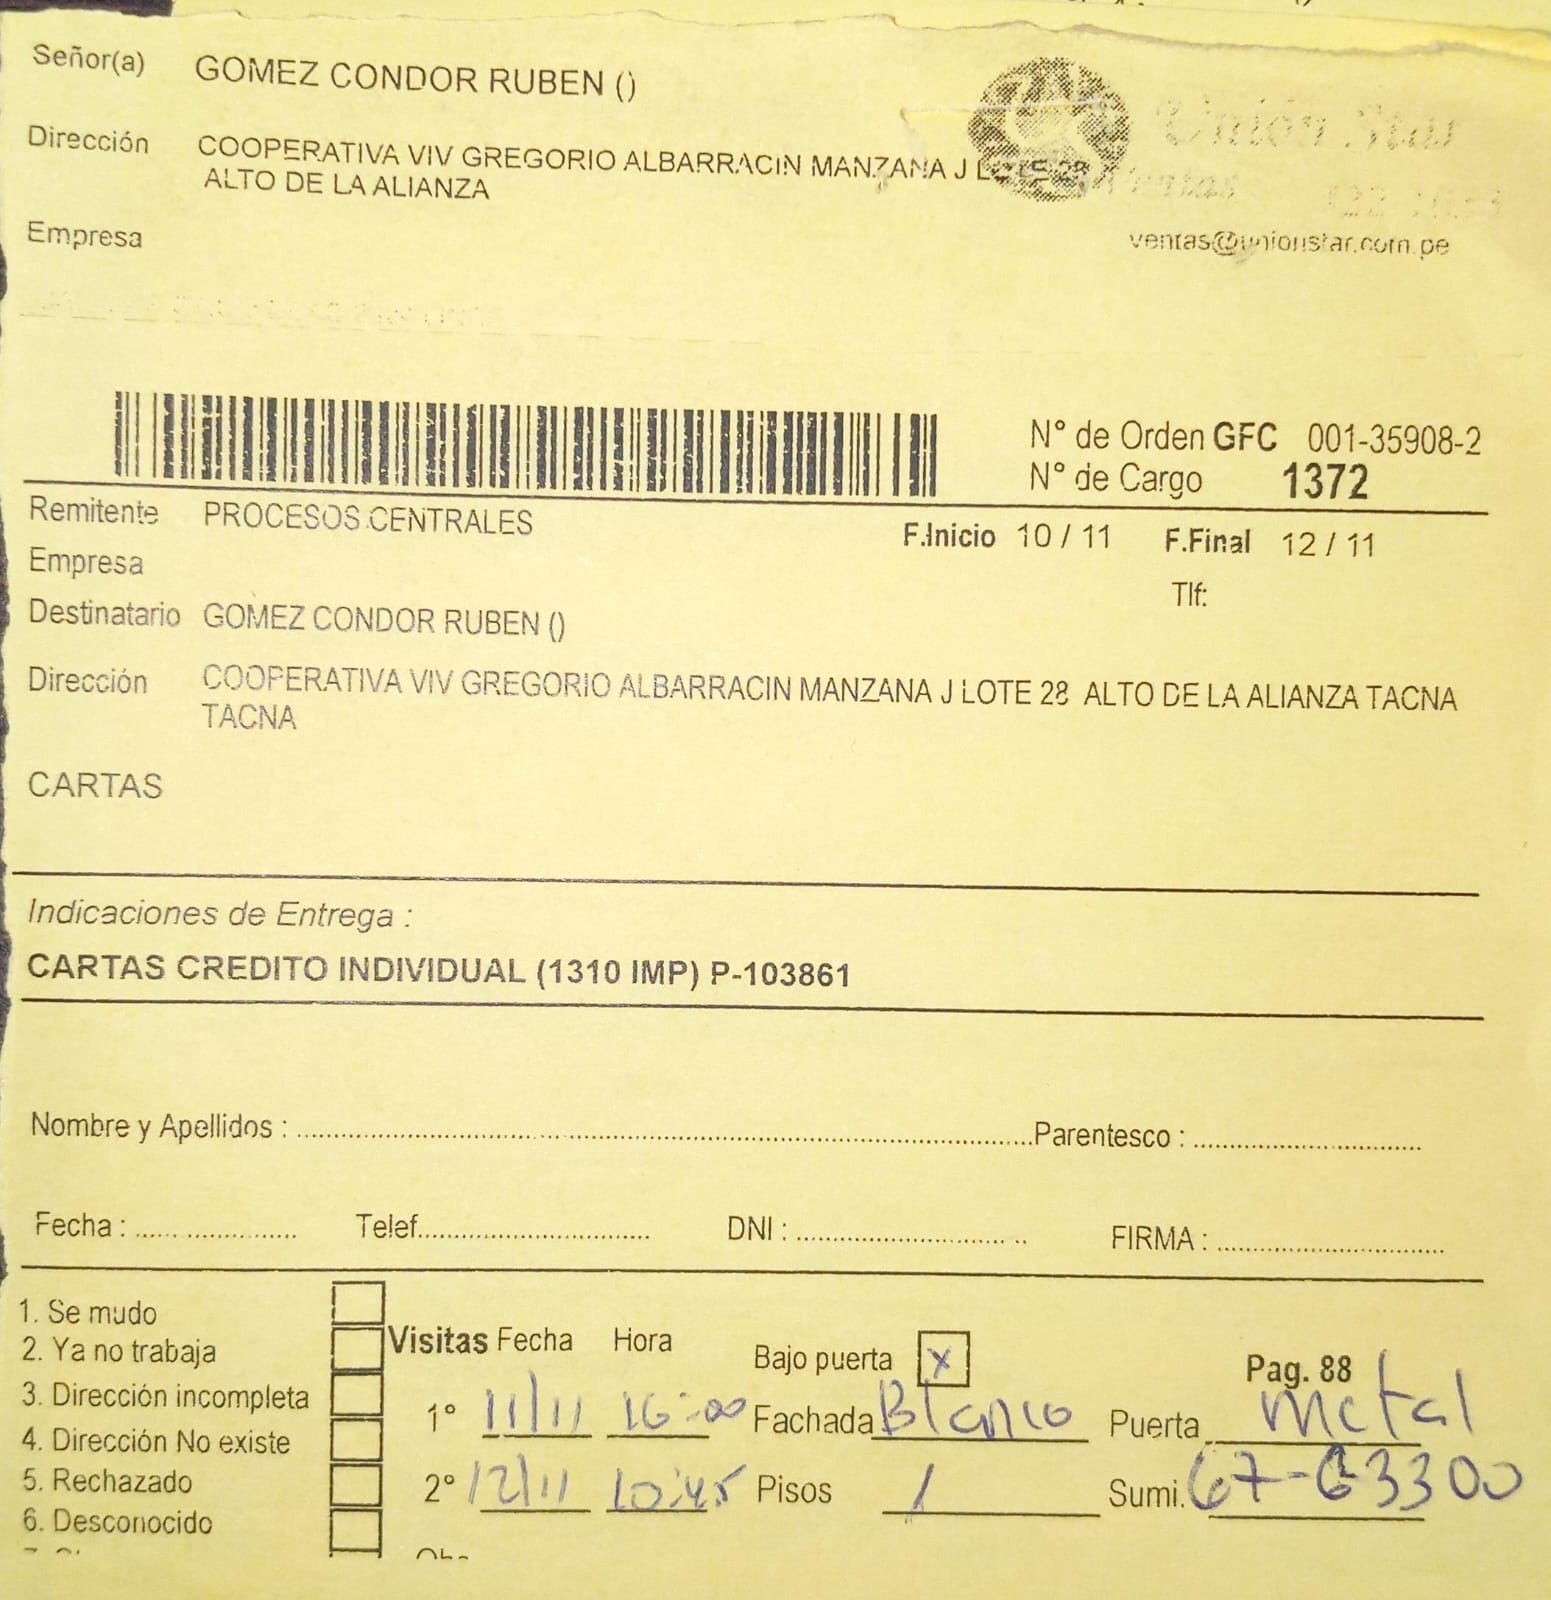 Señor(a) GOMEZ CONDOR RUBEN ()
Dirección COOPERATIVA VIV GREGORIO ALBARRACIN MANZANA J LOTE 28
ALTO DE LA ALIANZA
Empresa
ventas@unionstar.com.pe
N° de Orden GFC 001-35908-2
N° de Cargo 1372
Remitente PROCESOS CENTRALES
F.Inicio 10 / 11 F.Final 12 / 11
Empresa
Tlf:
Destinatario GOMEZ CONDOR RUBEN ()
Dirección COOPERATIVA VIV GREGORIO ALBARRACIN MANZANA J LOTE 28 ALTO DE LA ALIANZA TACNA
TACNA
CARTAS
Indicaciones de Entrega :
CARTAS CREDITO INDIVIDUAL (1310 IMP) P-103861
Nombre y Apellidos : Parentesco :
Fecha : Telef. DNI : FIRMA :
1. Se mudo
2. Ya no trabaja
3. Dirección incompleta
4. Dirección No existe
5. Rechazado
6. Desconocido
Visitas Fecha Hora Bajo puerta x Pag. 88
1° 11/11 16:00 Fachada Blanco Puerta metal
2° 12/11 10:45 Pisos 1 Sumi. 67-63300